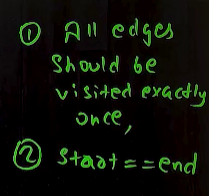 ① All edges
should be
visited exactly
once,
② Start == end